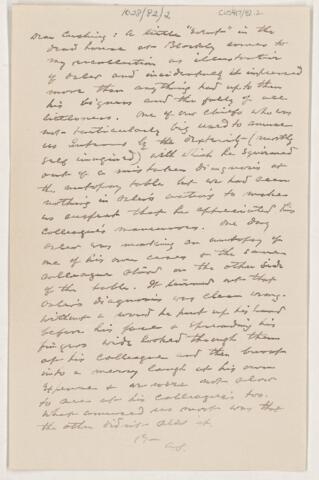 1028/82/2
CUS417/82.2
Dear Cushing: A little "event" in the
dead house at Blockley comes to
my recollection as illustrative
of Osler and incidentally it impressed
me more than anything had up to then
his bigness and the folly of all
littleness. One of our chiefs who was
not particularly big used to amuse
us Interns by the dexterity (mostly
self imagined) with which he squirmed
out of a mistaken diagnosis at
the autopsy table but we had seen
nothing in Osler's actions to make
us suspect that he appreciated his
colleague's maneuvers. One day
Osler was making an autopsy of
one of his own cases & the same
colleague stood on the other side
of the table. It turned out that
Osler's diagnosis was clean wrong.
Without a word he put up his hand
before his face & spreading his
fingers wide looked through them
at his colleague and then burst
into a merry laugh at his own
expense & we were not slow
to see at his colleague's too.
What amused us most was that
the other didn't see it.